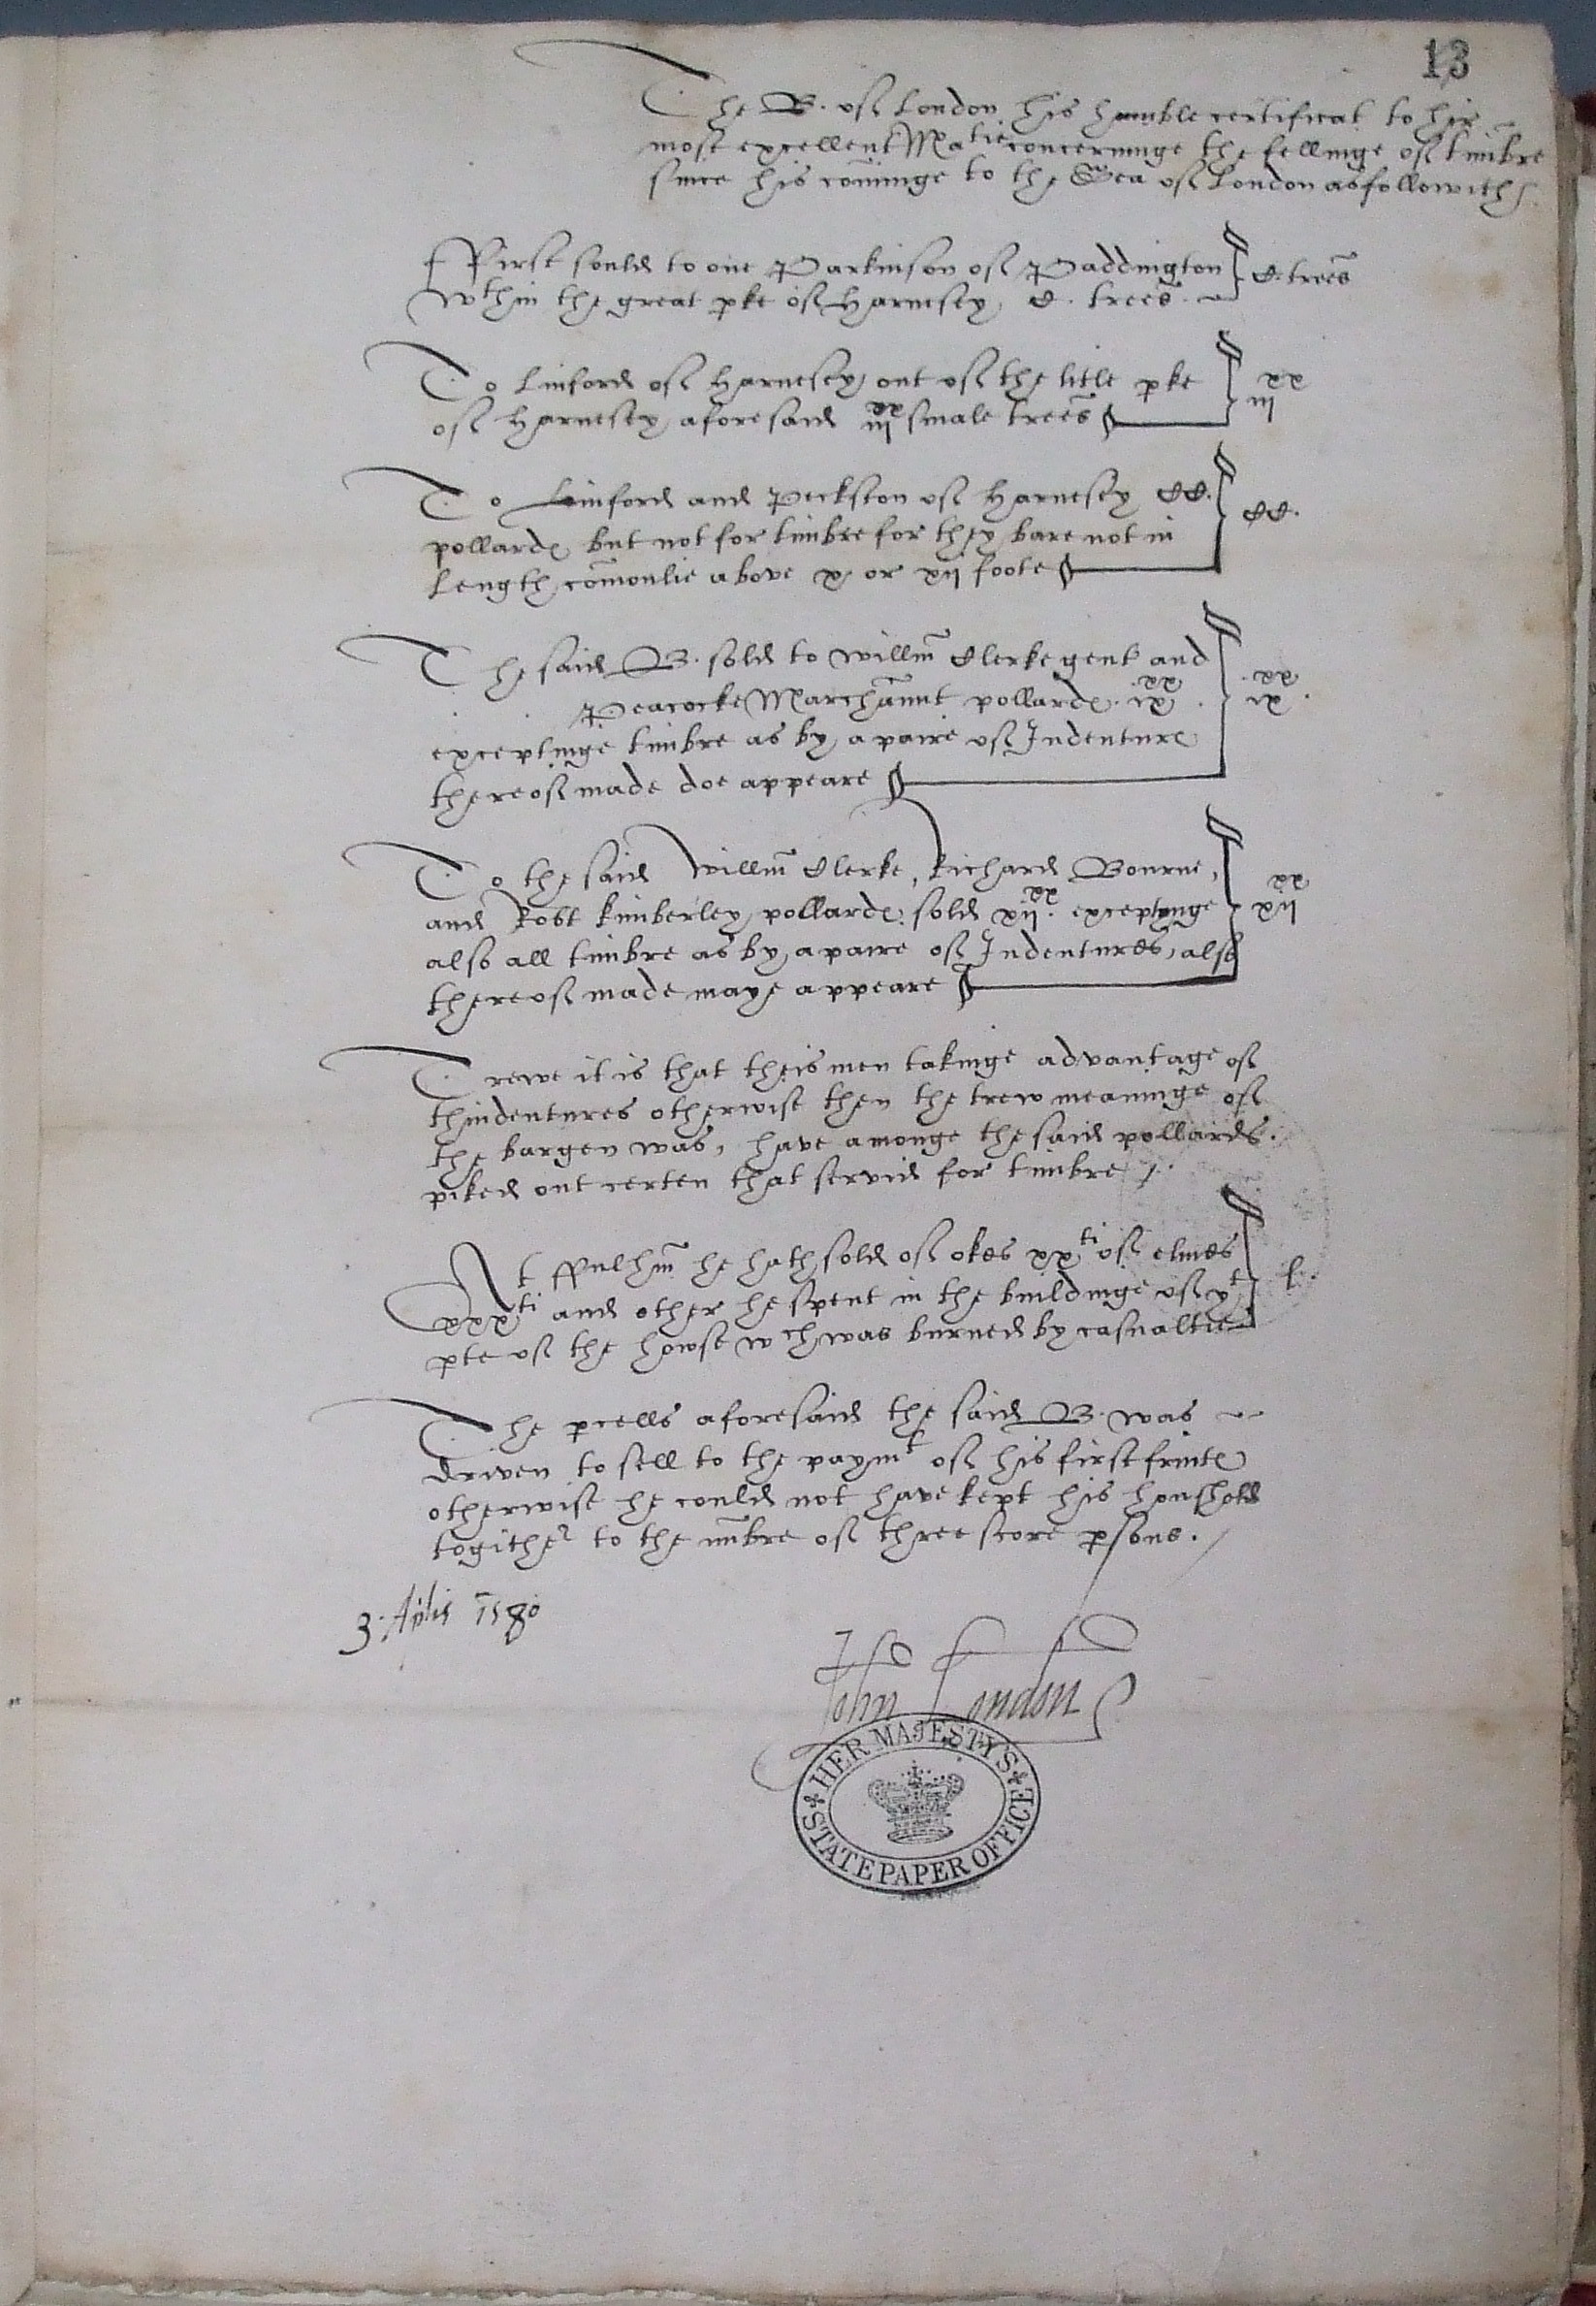 13
The B. of London his humble certificat to hir
most excellent Matie concerninge the fellinge of timbre
since his cominge to the Sea of London as followith
ffirst sould to one Parkinson of Paddington
wthin the great pke of Harnesey C. trees. C. trees
To Linford of Harnesey out of the litle pke
of Harnesey aforesaid iii xx smale trees iii xx
To Linford and Peckston of Harnesey CC.
pollardes but not for timbre for they bare not in
Length comonlie above x or xii foote CC.
The said B. sold to Willm Clerke gent and
Peacocke Marchaunt pollardes ix xx
exceptinge timbre as by a paire of Indentures
thereof made doe appeare ix xx
To the said Willm Clerke, Richard Bourne,
and Robt Kimberley pollardes sold xii xx exceptynge
also all timbre as by a paire of Indentures, also
thereof made maye appeare xii xx
Trewe it is that theis men takinge advantage of
thindentures otherwise then the trew meaninge of
the bargen was, have amonge the said pollards
piked out certen that servid for timbre
At ffulhm he hath sold of okes xxti of elmes
xxxti and other he spent in the buildinge of yt
pte of the howse wch was burned by casualtie l.
The pcells aforesaid the said B. was
driven to sell to the paymt of his first fruites
otherwise he could not have kept his houshold
togither to the nmbre of three score psons.
3. Aplis 1580
John London
HER MAJESTY'S
STATE PAPER OFFICE